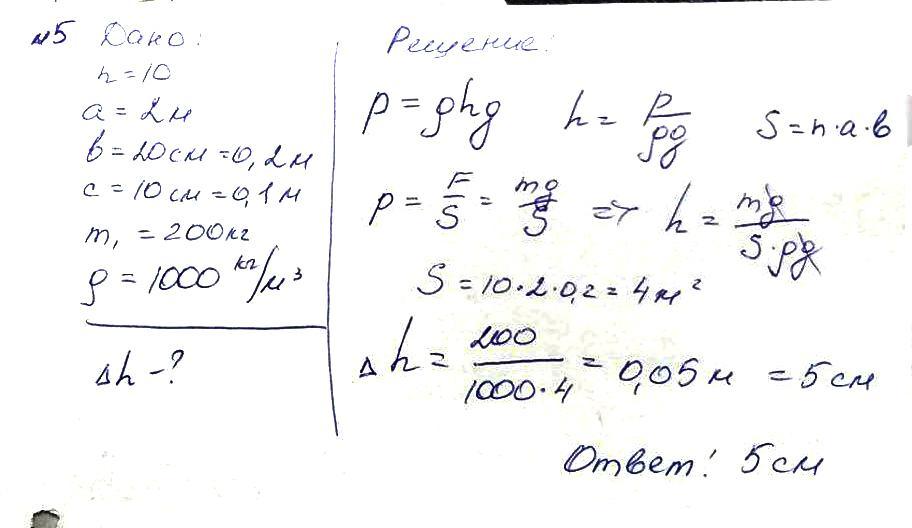 №5 Дано:
n = 10
a = 2м
b = 20см = 0,2м
c = 10см = 0,1м
m₁ = 200кг
ρ = 1000 кг/м³
Δh - ?
Решение:
p = ρhg h = p/ρg S = n·a·b
p = F/S = mg/S => h = mg/S·ρg
S = 10·2·0,2 = 4м²
Δh = 200/1000·4 = 0,05м = 5см
Ответ: 5см